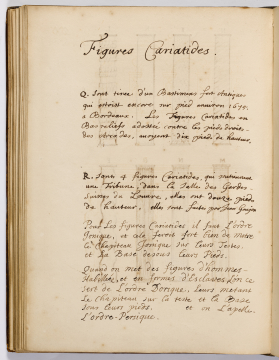 Figures Cariatides.
Q. Sont tirée d'un Bastiment fort Antiques
qui estoit encore sur pied environ 1675.
a Bordeaux. Les Figures Cariatides en
Bas reliefs adossée contre les pieds droits
des arcades, avoyent dix pieds de hauteur.
R. Sont 4 figures Cariatides, qui soutiennent
une Tribune, dans la Salle des Gardes
Suisses du Louvre, elles ont douze pieds
de hauteur, elles sont faites par Jean Goujon
Pour les figures Cariatides il faut l'ordre
Ionique, et cela seroit fort bien de mettre
le chapiteau Ionique sur leurs Testes.
et La Base dessous leurs Pieds.
Quand on met des figures d'hommes
Habillée, et en formes d'Esclaves, on se
sert de L'ordre Dorique, leurs metant
Le chapiteau sur la teste et la Base
sous leurs pieds, et on L'apelle
L'ordre-Persique.